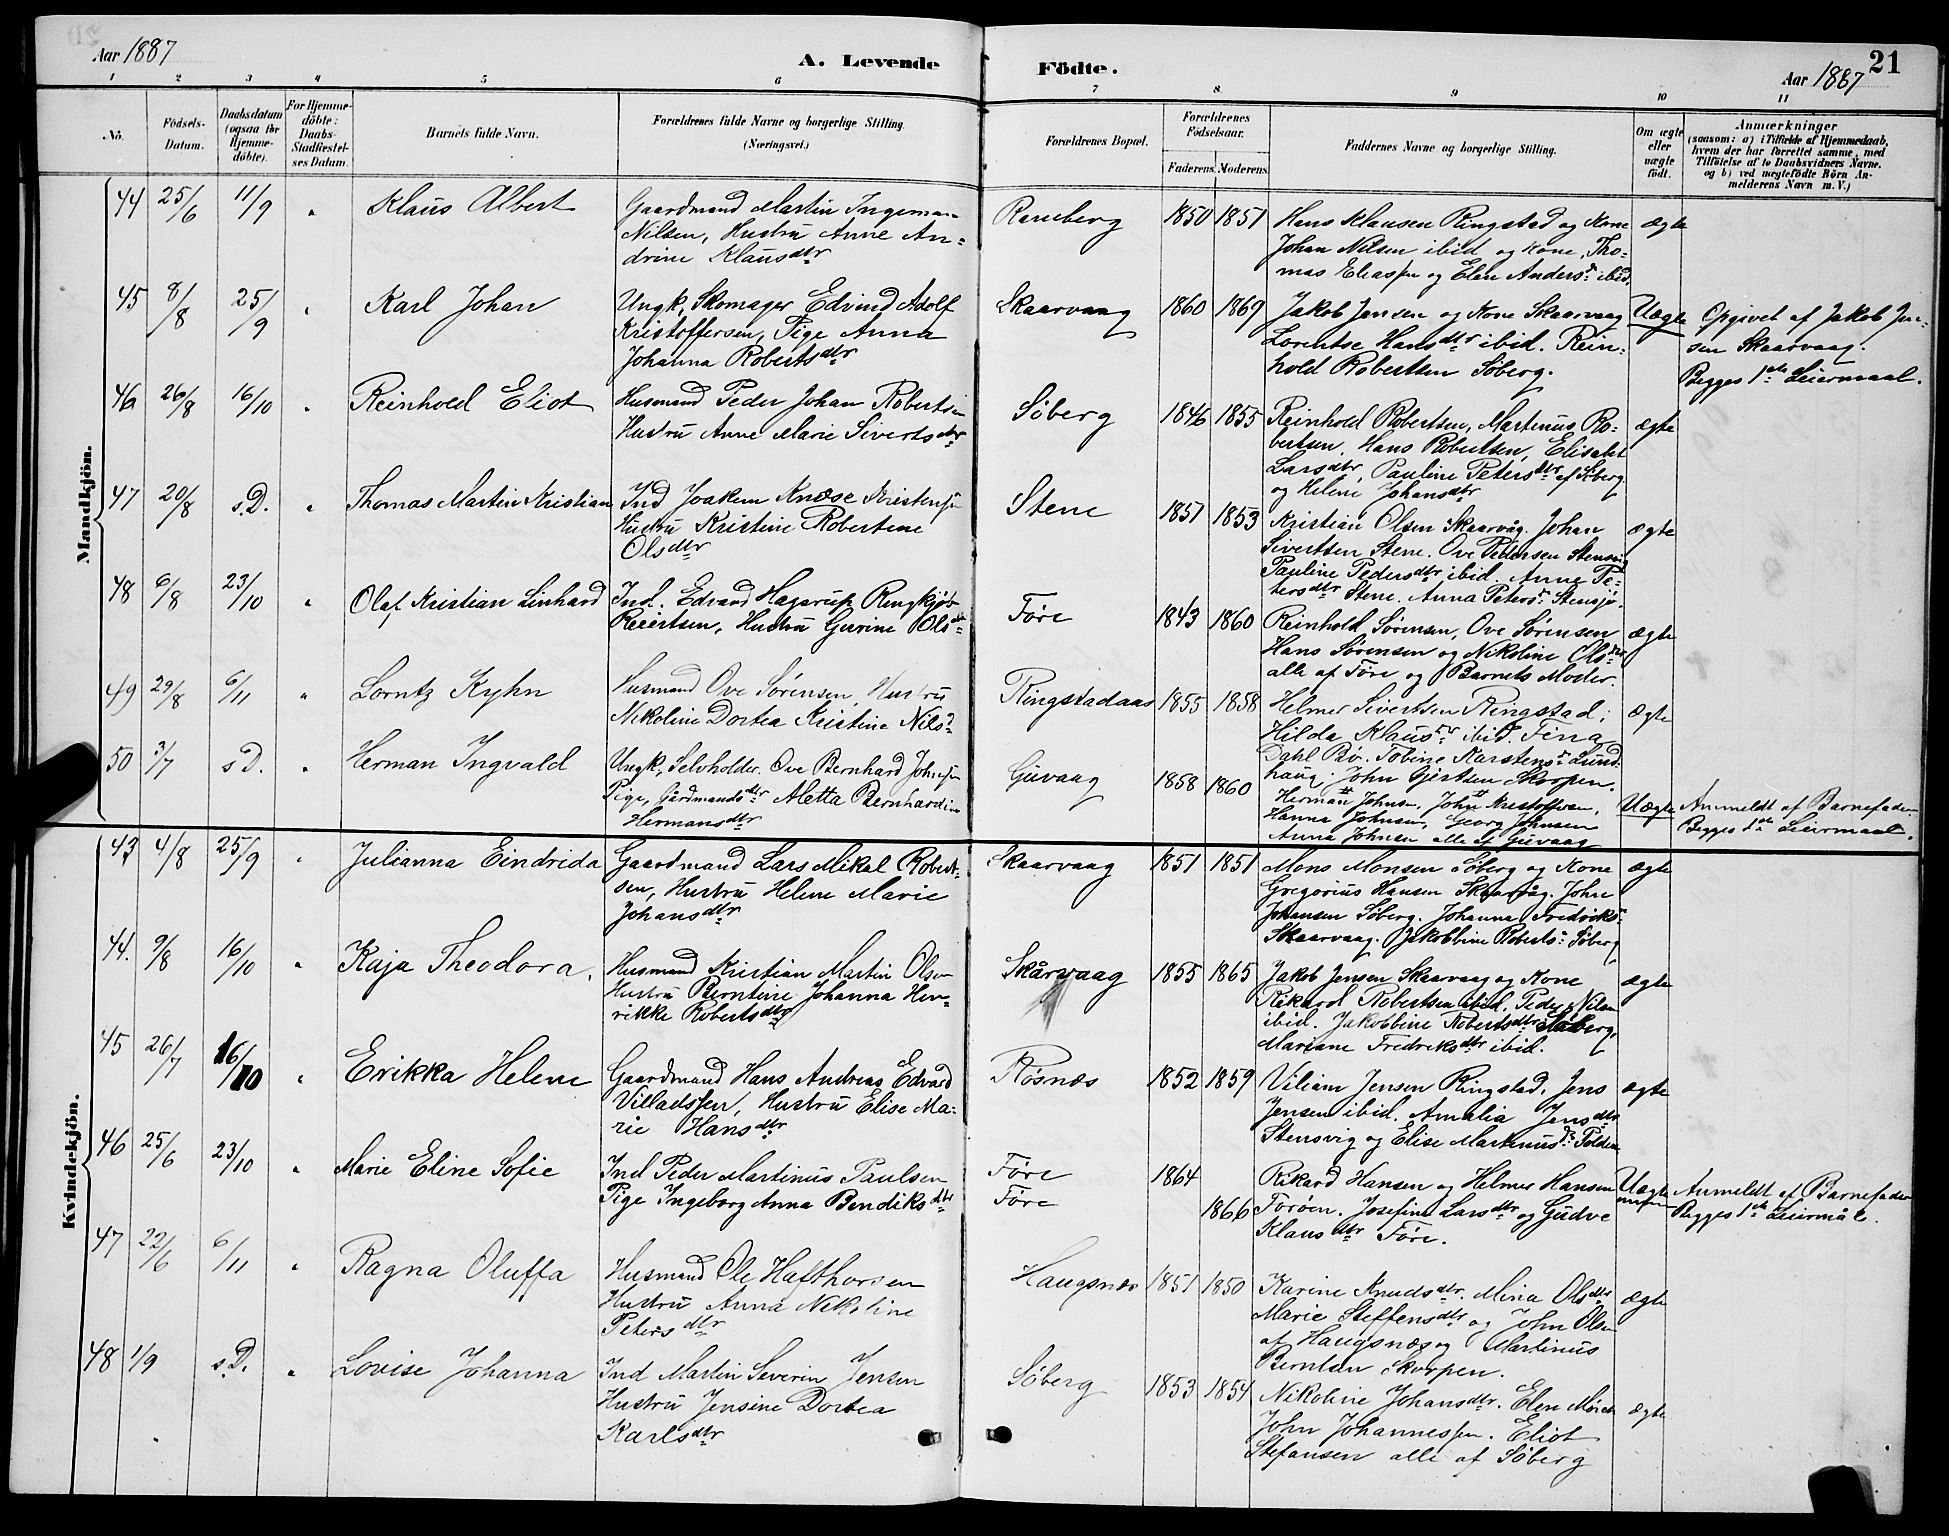 Aar 1887
A. Levende Födte.
Aar 1887
21
1 2 3 4 5 6 7 8 9 10 11
No.
Födsels-
Datum.
Daabsdatum
(ogsaa for
Hjemme-
döbte).
For Hjemme-
döbte:
Daabs-
Stadfæstel-
ses Datum.
Barnets fulde Navn.
Forældrenes fulde Navne og borgerlige Stilling.
(Næringsvei.)
Forældrenes Bopæl.
Forældrenes
Födselsaar.
Faderens. Moderens.
Faddernes Navne og borgerlige Stilling.
Om ægte
eller
uægte
født.
Anmærkninger
(saasom: a) i Tilfælde af Hjemmedaab,
hvem der har forrettet samme, med
Tilföielse af to Daabsvidners Navne.
og b) ved uægtefödte Börn An-
melderens Navn m. V.)
Mandkjön.
44 25/6 11/9 " Klaus Albert
Gaardmand Martin Ingeman
Nilsen, Hustru Anne An-
drine Klausdtr
Ramberg 1850 1851
Hans Klausen Ringstad og Kone
Johan Nilsen ibid og Kone, Tho-
mas Eliassen og Elen Andersd. ibid.
ægte
45 8/8 25/9 " Karl Johan
Ungk. Skomager Edvind Adolf
Kristoffersen, Pige Anna
Johanna Robertsdtr
Skaarvaag 1860 1869
Jakob Jensen og Kone Skaarvaag
Lorentse Hansdtr ibid. Rein-
hold Robertsen Söberg.
Uægte
Opgivet af Jakob Jen-
sen Skaarvaag.
Begges 1ste Leiermaal.
46 26/8 16/10 " Reinhold Eliot
Husmand Peder Johan Robertsen
Hustru Anne Marie Sivertsdtr
Söberg 1846 1855
Reinhold Robertsen, Martinus Ro-
bertsen, Hans Robertsen, Elisabet
Larsdtr, Pauline Petersdtr af Söberg
og Helene Johansdtr
ægte
47 20/8 s.D. " Thomas Martin Kristian
Ind Joakem Knöse Kristensen
Hustru Kristine Robertine
Olsdtr
Stene 1851 1853
Kristian Olsen Skaarvåg. Johan
Sivertsen Stene. Ove Pedersen Stensjö
Pauline Pedersdtr ibid. Anne Pe-
tersdtr Stene. Anna Petersd. Stensjö.
ægte
48 6/8 23/10 " Olaf Kristian Linhard
Ind. Edvard Hagerup Ringkjöb
Reiertsen, Hustru Gurine Olsdtr
Före 1843 1860
Reinhold Sörensen, Ove Sörensen
Hans Sörensen og Nikoline Olsdtr
alle af Före og Barnets Moder.
ægte
49 29/8 6/11 " Lorntz Kyhn
Husmand Ove Sörensen, Hustru
Nikoline Dortea Kristine Nilsd.
Ringstadaas 1855 1858
Helmer Sivertsen Ringstad;
Hilda Klausdtr ibid. Fina
Dahl Bö. Tobine Karstensd. Lund
haug. John Gjertsen Skorpen.
ægte
50 3/7 s.D. " Herman Ingvald
Ungk, Selvholder. Ove Bernhard Johnsen
Pige, Gårdmandsdtr Aletta Bernhardine
Hermansdtr
Guvaag 1858 1860
Herman Johnsen, John Kristoffersen,
Hanna Johnsen, Georg Johnsen
Anna Johnsen alle af Guvaag
Uægte
Anmeldt af Barnefader
Begges 1ste Leiermaal.
Kvindekjön.
43 4/8 25/9 " Julianna Eindrida
Gaardmand Lars Mikal Robert-
sen, Hustru Helene Marie
Johansdtr
Skaarvaag 1851 1851
Mons Monsen Söberg og Kone
Gregorius Hansen Skaarvåg. John
Johansen Söberg. Johanna Fredriksd.
Skaarvaag. Jakobbine Robertsd. Söberg
ægte
44. 9/8 16/10 " Kaja Theodora.
Husmand Kristian Martin Olsen
Hustru Berntine Johanna Hen-
rikke Robertsdtr
Skårvaag 1855 1865
Jakob Jensen Skaarvaag og Kone
Rikard Robertsen ibid, Peder Nilsen
ibid. Jakobbine Robertsdtr Söberg,
Mariane Fredriksdtr ibid.
ægte
45 26/7 16/10 " Erikka Helene
Gaardmand Hans Andreas Edvard
Villadssen, Hustru Elise Ma-
rie Hansdtr
Røsnæs 1852 1859
Viliam Jensen Ringstad, Jens
Jensen ibid. Amalia Jensdtr
Stensvig og Elise Markmusd.
ægte
46 25/6 23/10 " Marie Eline Sofie
Ind Peder Martinus Paulsen
Pige Ingeborg Anna Bendiksdtr
Före 1864
Före 1866
Rikard Hansen og Helmer Hansen
Forøen. Josefine Larsdtr og Gudve
Klausdtr Före.
Uægte
Anmeldt af Barnefader
Begges 1ste Leiermål.
47 22/6 6/11 " Ragna Oluffa
Husmand Ole Hafthorsen
Hustru Anna Nikoline
Petersdtr
Haugsnæs 1851 1850
Karine Knudsdtr. Mina Olsdtr
Marie Steffensdtr og John Olsen
af Haugsnæs og Martinus
Berntsen Skorpen.
ægte
48 1/9 s.D. " Lovise Johanna
Ind Martin Severin Jensen
Hustru Jensine Dortea
Karlsdtr
Söberg 1853 1854
Nikoline Johansdtr. Elen
John Johannessen. Eliot
Stefansen alle af Söberg
ægte